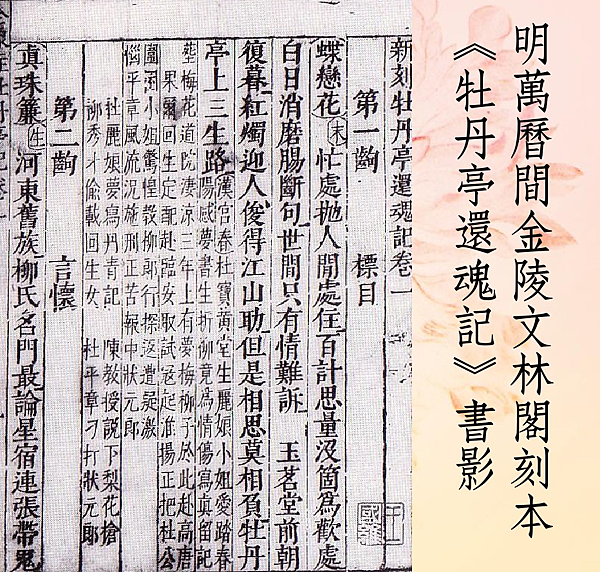 明萬曆間金陵文林閣刻本
《牡丹亭還魂記》書影
新刻牡丹亭還魂記卷一
第一齣 標目
蝶戀花 末 忙處拋人閒處住百計思量沒箇為歡處
白日消磨腸斷句世間只有情難訴 玉茗堂前朝
復暮紅燭迎人俊得江山助但是相思莫相負牡丹
亭上三生路 漢宮春杜寶黃堂生麗娘小姐愛踏春
陽感夢書生折柳竟為情傷寫真留記
葬梅花道院淒涼三年上有夢梅柳子於此赴高唐
果爾回生定配赴臨安取試寇起淮揚正把杜公
圍困小姐驚惶教柳郎行探返遭疑激
惱平章風流況施刑正苦報中狀元郎
杜麗娘夢寫丹青記 陳教授說下梨花槍
柳秀才偷載回生女 杜平章刁打狀元郎
第二齣 言懷
真珠簾 生 河東舊族柳氏名門最論星宿連張帶鬼